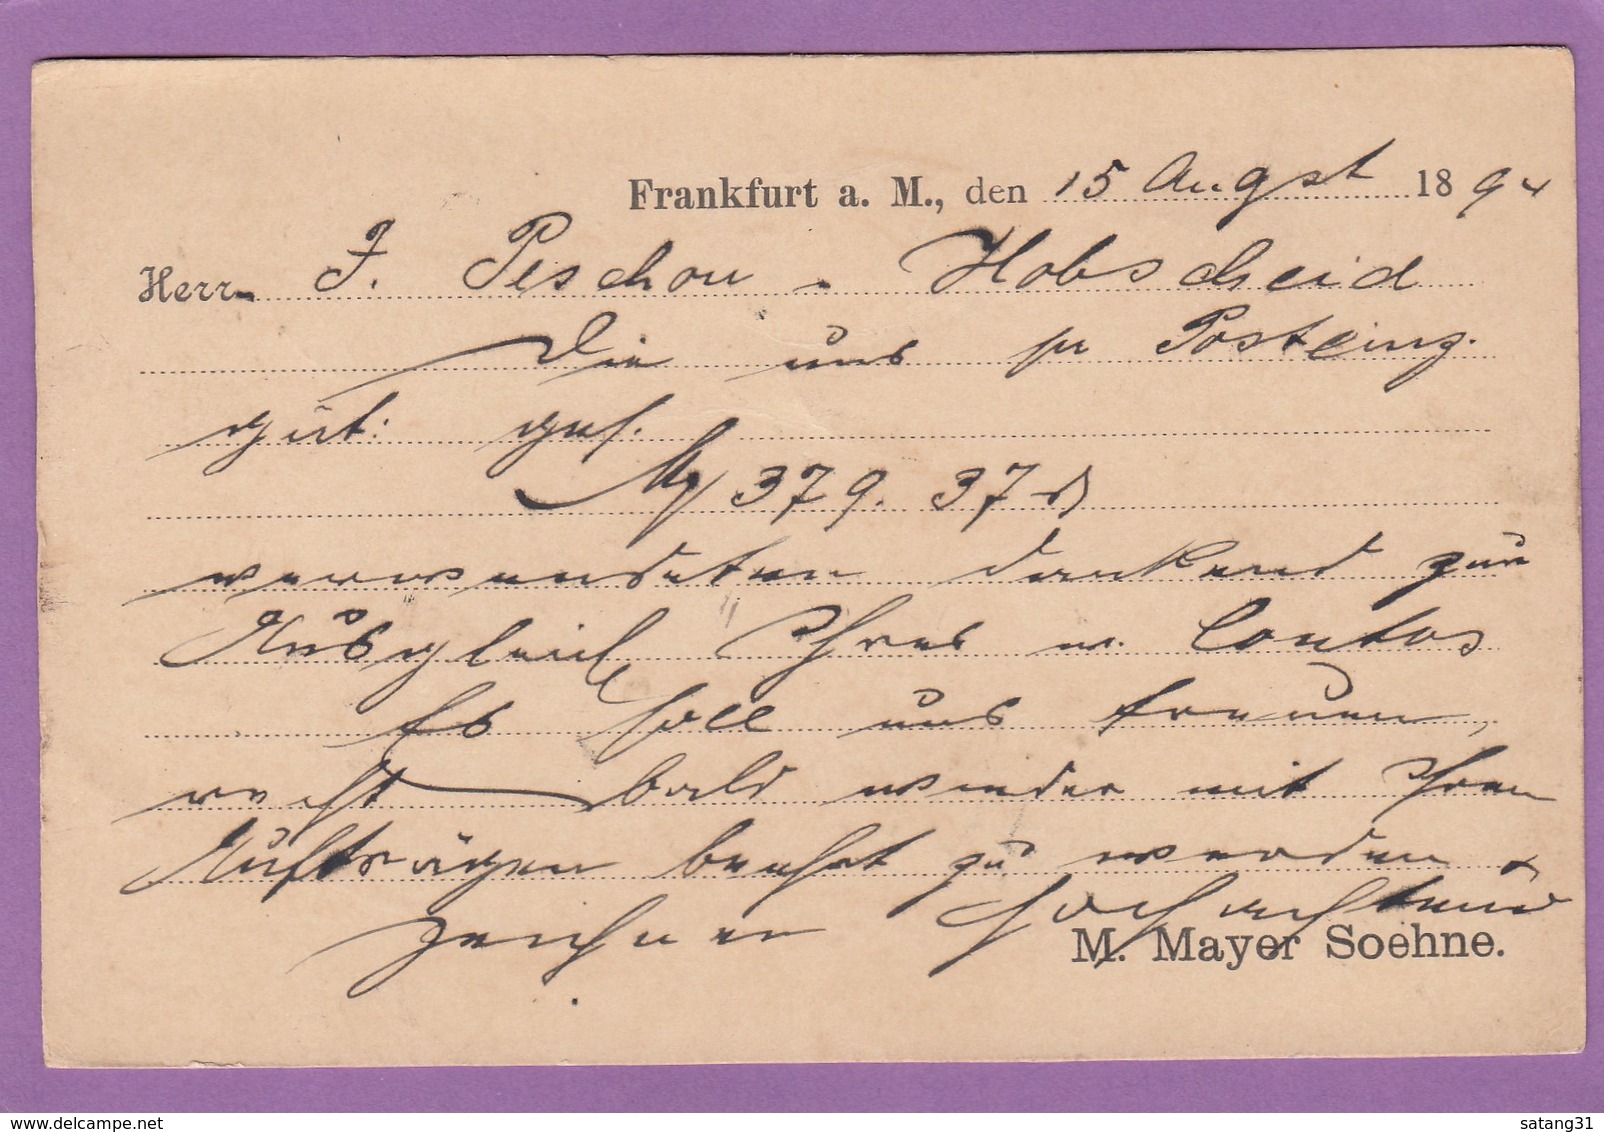 Frankfurt a. M., den 15 August 1894
Herrn J. Peschon - Hobscheid
Die uns pr Posteinz.
güt: ges.
M 379. 37 d
verwendeten dankend zum
Ausgleich Ihres w. Contos
Es soll uns freuen,
recht bald wieder mit Ihren
Aufträgen beehrt zu werden &
zeichnen Hochachtend
M. Mayer Soehne.
satang31